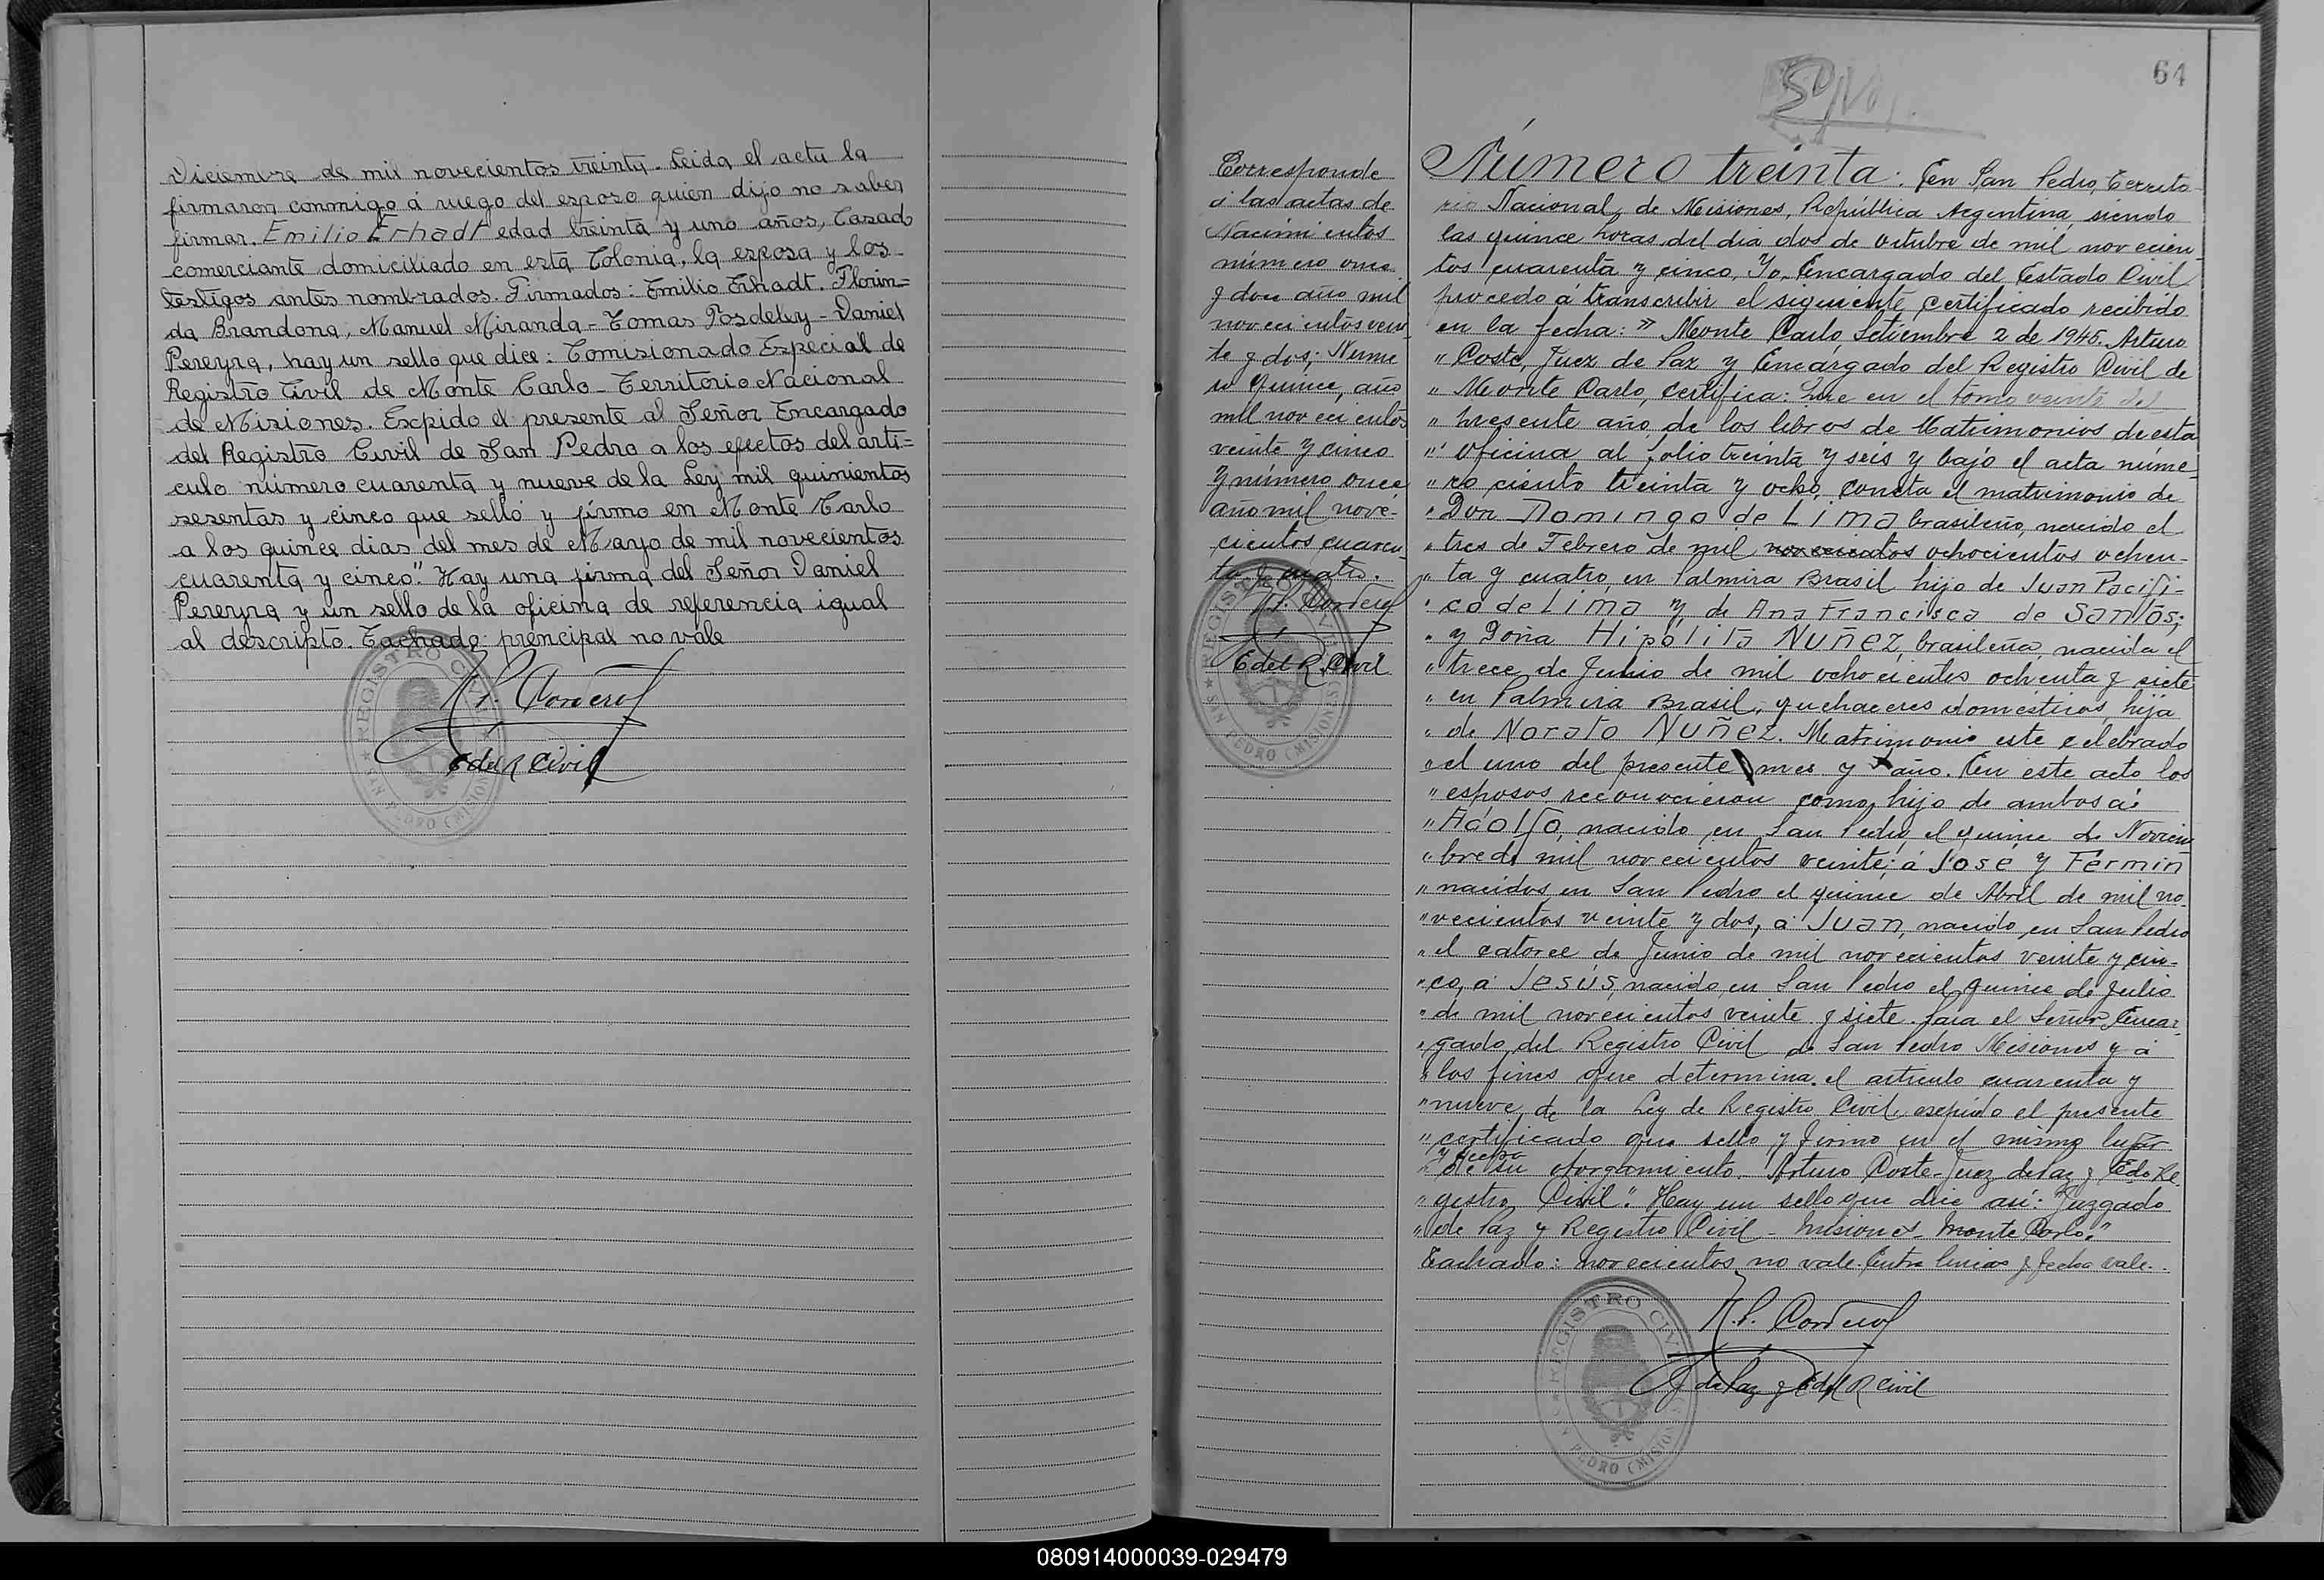 Diciembre de mil novecientos treinta. Leida el acta la
firmaron conmigo á ruego del esposo quien dijo no saber
firmar. Emilio Erhadt edad treinta y uno años, Casado
comerciante domiciliado en esta Colonia, la esposa y los
testigos antes nombrados. Firmados: Emilio Erhadt. Florin=
da Brandona, Manuel Miranda - Tomas Posdeley - Daniel
Pereyra, hay un sello que dice: Comisionado Especial de
Registro Civil de Monte Carlo - Territorio Nacional
de Misiones. Expido el presente al Señor Encargado
del Registro Civil de San Pedro a los efectos del artí=
culo número cuarenta y nueve de la Ley mil quinientos
sesentas y cinco que selló y firmo en Monte Carlo
a los quince dias del mes de Mayo de mil novecientos
cuarenta y cinco". Hay una firma del Señor Daniel
Pereyra y un sello de la oficina de referencia igual
al descripto. Tachado: prencipal no vale
REGISTRO CIVIL
SN PEDRO (MISIONES)
E del R Civil
64
Corresponde
á las actas de
Nacimientos
número once
y doce año mil
novecientos vein-
te y dos; Nume-
ro Quince, año
mil novecientos
veinte y cinco
y número once
año mil nove-
cientos cuaren-
ta y cuatro.
E del R. Civil
REGISTRO CIVIL
SN PEDRO (MISIONES)
Número treinta: En San Pedro, Territo-
rio Nacional de Misiones, República Argentina, siendo
las quince horas del dia dos de octubre de mil novecien-
tos cuarenta y cinco, Yo, Encargado del Estado Civil
procedo á transcribir el siguiente certificado recibido
en la fecha: » Monte Carlo, Setiembre 2 de 1945. Arturo
" Coste, Juez de Paz y Encargado del Registro Civil de
" Monte Carlo, certifica: Que en el tomo veinte del
" presente año de los libros de Matrimonios de esta
" oficina al folio treinta y seis y bajo el acta núme-
" ro ciento treinta y ocho, consta el matrimonio de
" Don Domingo de Lima brasileño, nacido el
" tres de Febrero de mil novecientos ochocientos ochen-
" ta y cuatro, en Palmira Brasil hijo de Juan Pacifi-
" co de Lima y de Ana Francisca de Santos;
" y Doña Hipólita Nuñez, brasileña, nacida el
" trece de Junio de mil ochocientos ochenta y siete
" en Palmira Brasil, quehaceres domésticos, hija
" de Norato Nuñez. Matrimonio este celebrado
" el uno del presente mes y año. En este acto los
" esposos reconocieron como hijo de ambos á
" Adolfo, nacido en San Pedro, el quince de Noviem-
" bre de mil novecientos veinte; á José y Fermin
" nacidos en San Pedro el quince de Abril de mil no-
" vecientos veinte y dos, á Juan, nacido en San Pedro
" el catorce de Junio de mil novecientos veinte y cin-
" co, a Jesús, nacido en San Pedro el quince de Julio
" de mil novecientos veinte y siete. Para el Señor Encar-
" gado del Registro Civil de San Pedro Misiones y á
" los fines que determina el artículo cuarenta y
" nueve de la Ley de Registro Civil, expido el presente
" certificado que sello y firmo en el mismo lugar
y fecha
" de su otorgamiento. Arturo Coste - Juez de Paz y Edo Re
" gistro Civil". Hay un sello que dice asi: "Juzgado
" de Paz y Registro Civil - Misiones - Monte Carlo."
Tachado: novecientos, no vale. Entre lineas y fecha vale.
J de Paz y E del R Civil
REGISTRO CIVIL
SN PEDRO (MISIONES)
080914000039-029479